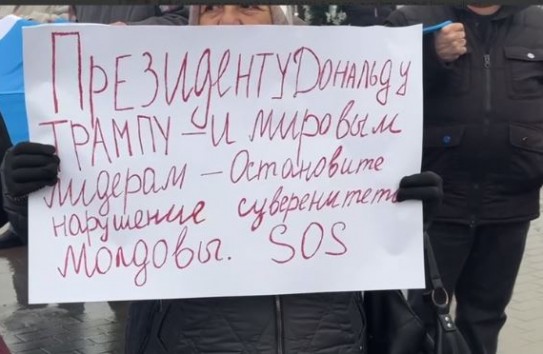 ПРЕЗИДЕНТУ ДОНАЛЬДУ
ТРАМПУ – И МИРОВЫМ
ЛИДЕРАМ – Остановите
нарушение суверенитета
Молдовы. SOS